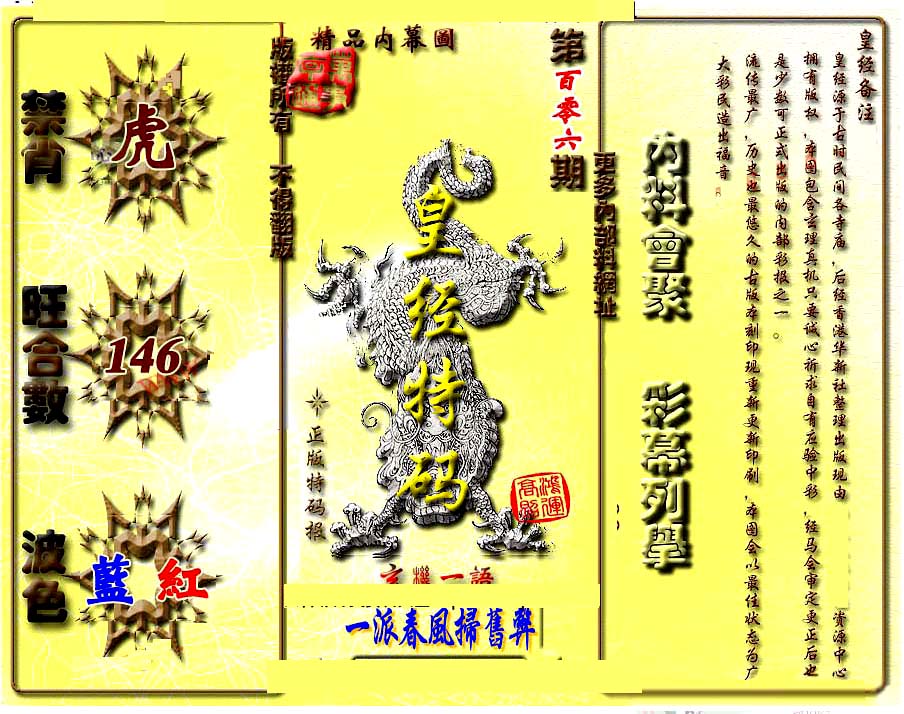 禁肖
虎
旺合數
146
波色
藍 紅
精品内幕圖
版權所有 不得翻版
第百零六期
更多内部料網址
皇经特码
正版特码报
鴻運高照
玄機一語
一派春風掃舊弊
内料會聚 彩幕列擧
皇经备注
皇经源于古时民间各寺庙，后经香港华新社整理出版现由 资源中心
拥有版权，本图包含玄理真机只要诚心祈求自有应验中彩，经马会审定更正后也
是少数可正式出版的内部彩报之一。
流传最广，历史也最悠久的古版本刻印现重新更新印刷，本图会以最佳状态为广
大彩民造出福音